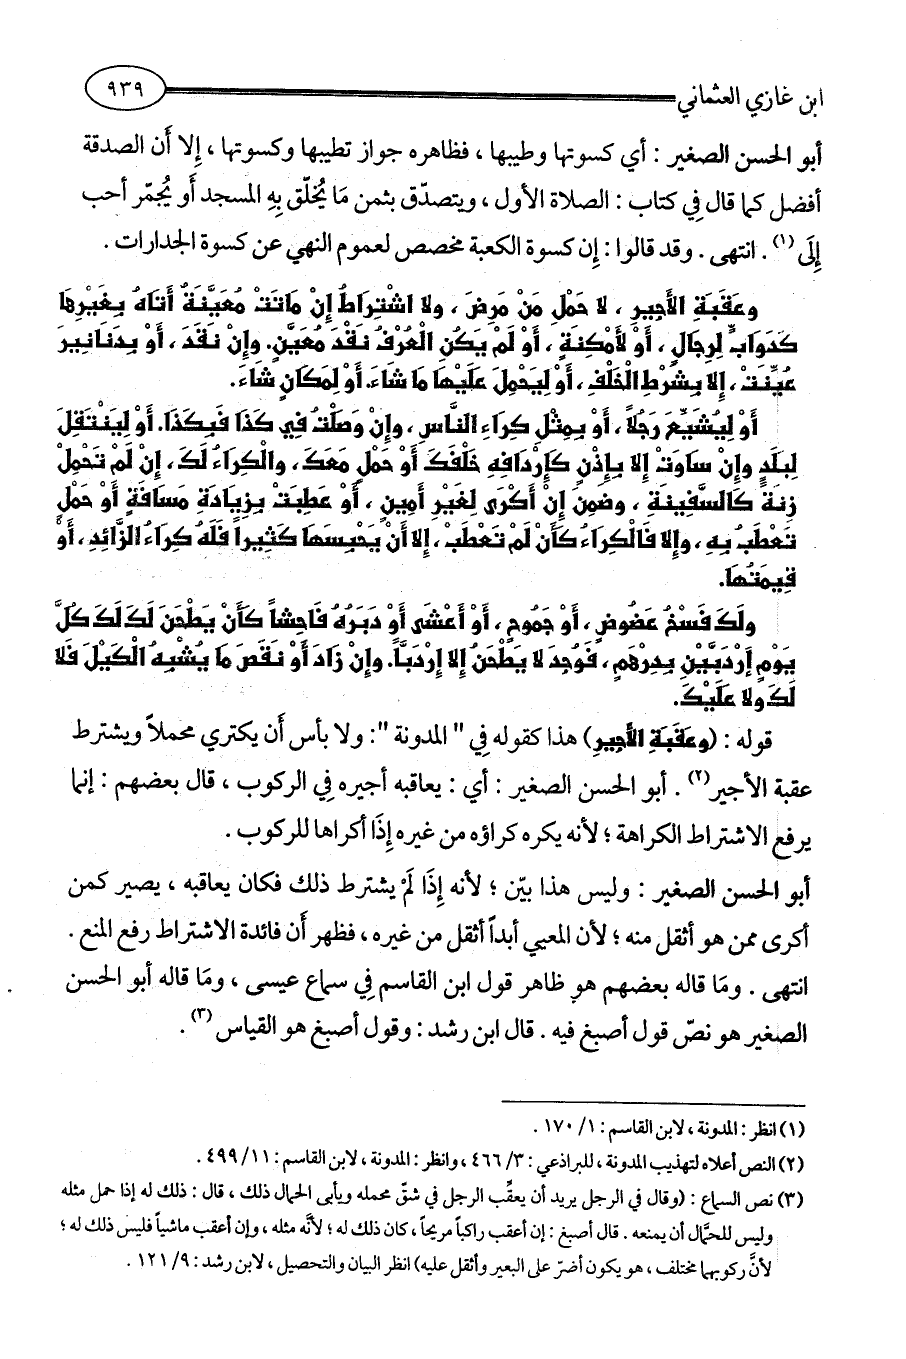 ابن غازي العثماني ٩٣٩
أبو الحسن الصغير : أي كسوتها وطيبها ، فظاهره جواز تطيبها وكسوتها ، إلا أَن الصدقة
أفضل كما قال فِي كتاب : الصلاة الأول ، ويتصدّق بثمن مَا يُخلّق بِهِ المسجد أَو يُجمّر أحب
إِلَى (١) . انتهى . وقد قالوا : إِن كسوة الكعبة مخصص لعموم النهي عن كسوة الجدارات .
وعَقَبَةِ الأَجِيرِ ، لا حَمْلِ مَنْ مَرِضَ ، ولا اشْتِرَاطُ إِنْ مَاتَتْ مُعَيَّنَةٌ أَتَاهُ بِغَيْرِهَا
كَدَوَابٍّ لِرِجَالٍ ، أَوْ لأَمْكِنَةٍ ، أَوْ لَمْ يَكُنِ الْعُرْفُ نَقْدَ مُعَيَّنٍ. وإِنْ نَقَدَ ، أَو بِدَنَانِيرَ
عُيِّنَتْ ، إِلا بِشَرْطِ الْخَلْفِ ، أَوْ لِيَحْمِلَ عَلَيْهَا مَا شَاءَ. أَوْ لِمَكَانٍ شَاءَ.
أَوْ لِيُشَيِّعَ رَجُلاً ، أَو بِمِثْلِ كِرَاءِ النَّاسِ ، وإِنْ وَصَلْتُ فِي كَذَا فَبِكَذَا. أَوْ لِيَنْتَقِلَ
لِبَلَدٍ وإِنْ سَاوَتْ إِلا بِإِذْنٍ كَإِرْدَافِهِ خَلْفَكَ أَوْ حَمْلٍ مَعَكَ ، والْكِرَاءُ لَكَ ، إِنْ لَمْ تَحْمِلْ
زِنَةً كَالسَّفِينَةِ ، وضَمِنَ إِنْ أَكْرَى لِغَيْرِ أَمِينٍ ، أَوْ عَطِبَتْ بِزِيَادَةِ مَسَافَةٍ أَوْ حَمْلٍ
تَعْطَبُ بِهِ ، وإِلا فَالْكِرَاءُ كَأَنْ لَمْ تَعْطَبْ ، إِلا أَنْ يَحْبِسَهَا كَثِيراً فَلَهُ كِرَاءُ الزَّائِدِ ، أَوْ
قِيمَتُهَا.
ولَكَ فَسْخُ عَضُوضٍ ، أَوْ جَمُوحٍ ، أَوْ أَعْشَى أَوْ دَبَرُهُ فَاحِشاً كَأَنْ يَطْحَنَ لَكَ كُلَّ
يَوْمٍ إِرْدَبَّيْنِ بِدِرْهَمٍ ، فَوُجِدَ لا يَطْحَنُ إِلا إِرْدَبّاً. وإِنْ زَادَ أَوْ نَقَصَ مَا يُشْبِهُ الْكَيْلَ فَلا
لَكَ ولا عَلَيْكَ.
قوله : (وعَقَبَةِ الأَجِيرِ) هذا كقوله فِي " المدونة ": ولا بأس أَن يكتري محملاً ويشترط
عقبة الأجير (٢) . أبو الحسن الصغير : أي : يعاقبه أجيره فِي الركوب ، قال بعضهم : إنما
يرفع الاشتراط الكراهة ؛ لأنه يكره كراؤه من غيره إِذَا أكراها للركوب .
أبو الحسن الصغير : وليس هذا بيّن ؛ لأنه إِذَا لَمْ يشترط ذلك فكان يعاقبه ، يصير كمن
أكرى ممن هو أثقل منه ؛ لأن المعيي أبداً أثقل من غيره ، فظهر أَن فائدة الاشتراط رفع المنع .
انتهى . ومَا قاله بعضهم هو ظاهر قول ابن القاسم فِي سماع عيسى ، ومَا قاله أبو الحسن
الصغير هو نصّ قول أصبغ فيه . قال ابن رشد : وقول أصبغ هو القياس (٣) .
(١) انظر : المدونة ، لابن القاسم : ١/ ١٧٠ .
(٢) النص أعلاه لتهذيب المدونة ، للبراذعي : ٣/ ٤٦٦ ، وانظر : المدونة ، لابن القاسم : ١١/ ٤٩٩ .
(٣) نص السماع : (وقال في الرجل يريد أن يعقِّب الرجل في شقّ محمله ويأبى الحمال ذلك ، قال : ذلك له إذا حمل مثله
وليس للحمَّال أن يمنعه . قال أصبغ : إن أعقب راكباً مريحاً ، كان ذلك له ؛ لأنَّه مثله ، وإن أعقب ماشياً فليس ذلك له ؛
لأنَّ ركوبهما مختلف ، هو يكون أضرّ على البعير وأثقل عليه) انظر البيان والتحصيل ، لابن رشد : ٩/ ١٢١ .